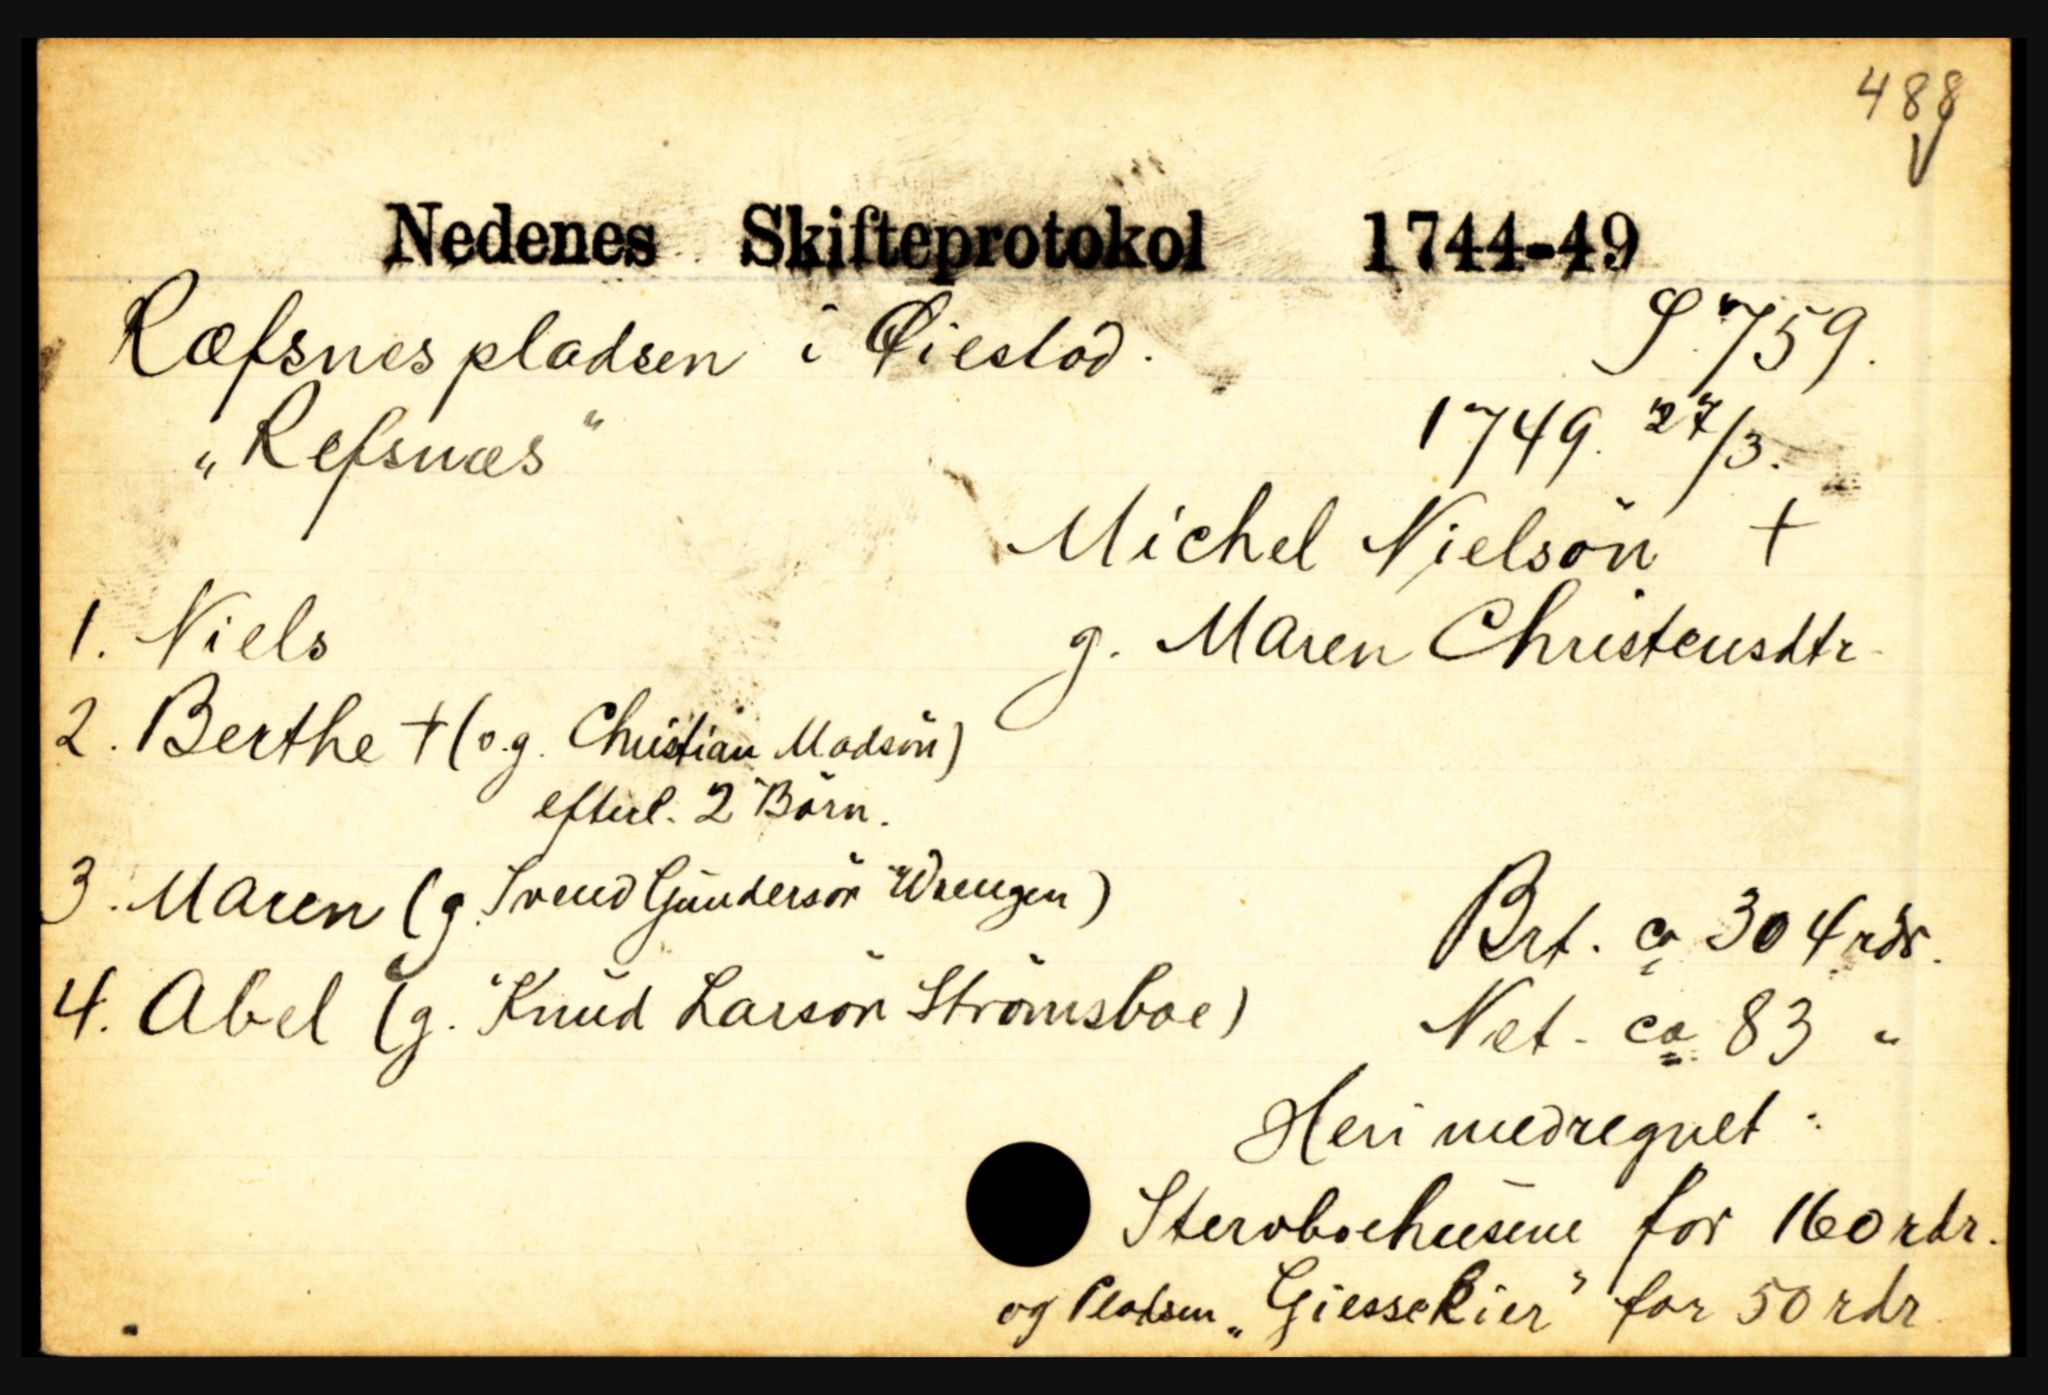 488
Nedenes Skifteprotokol 1744-49
Ræfsnespladsen i Øiestad. S. 759.
„Refsnæs“ 1749. 27/3.
Michel Nielsön †
1. Niels g. Maren Christensdtr.
2. Berthe † (v.g. Christian Madsön)
efterl. 2 Börn.
3. Maren (g. Svend Gundersön Wrengen)
Brt. ca 304 rdr.
4. Abel (g. Knud Larsön Strömsboe)
Net. ca 83 "
Heri medregnet:
Stervboehusene for 160 rdr.
og Pladsen „Giessekier“ for 50 rdr